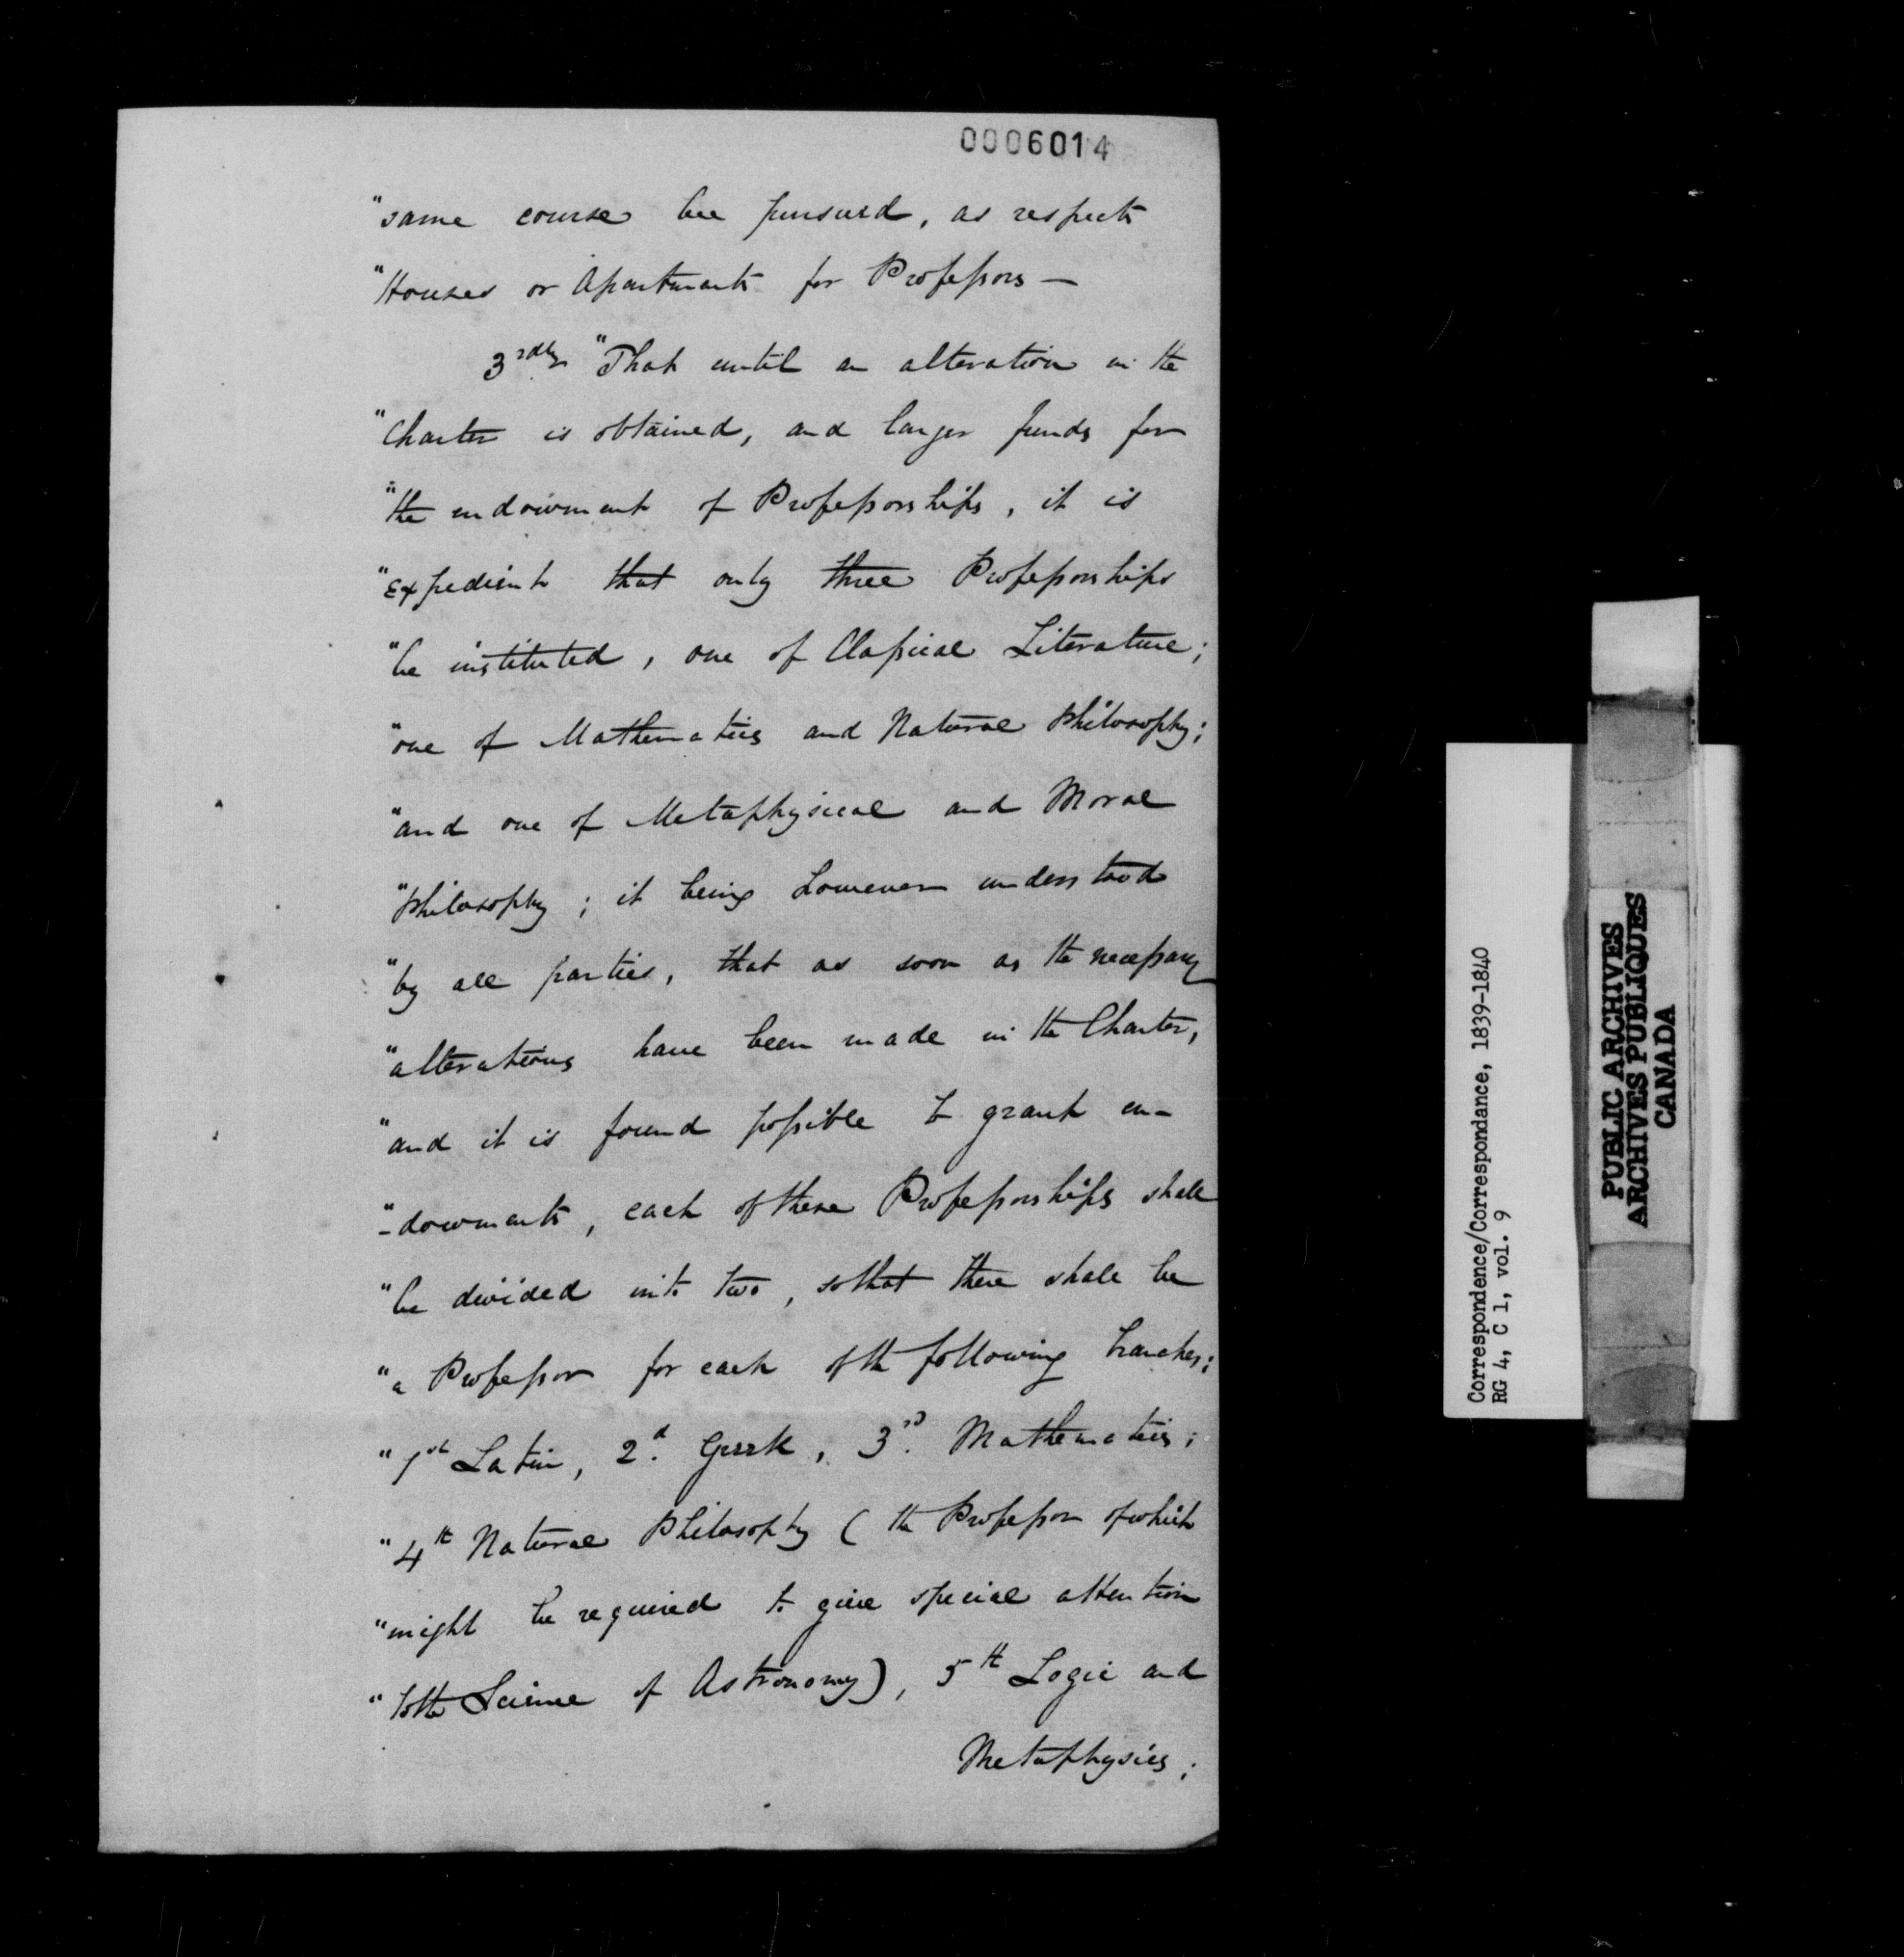 0006014
"same course be pursued, as respects
"Houses or Apartments for Professors —
3rdly "That until an alteration in the
"Charter is obtained, and larger funds for
"the endowment of Professorships, it is
"expedient that only three Professorships
"be instituted, one of Classical Literature;
"one of Mathematics and Natural Philosophy;
"and one of Metaphysical and Moral
"Philosophy; it being however understood
"by all parties, that as soon as the necessary
"alterations have been made in the Charter,
"and it is found possible to grant en-
"-dowments, each of these Professorships shall
"be divided into two, so that there shall be
"a Professor for each of the following branches;
"1st Latin, 2d. Greek, 3rd. Mathematics;
"4th Natural Philosophy (the Professor of which
"might be required to give special attention
"to the Science of Astronomy), 5th Logic and
Metaphysics;
Correspondence/Correspondance, 1839-1840
RG 4, C 1, vol. 9
PUBLIC ARCHIVES
ARCHIVES PUBLIQUES
CANADA